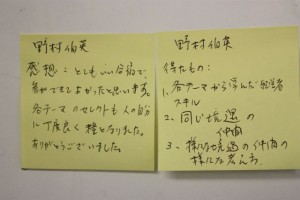 野村伯英
感想:とてもいい合宿で、
参加できてよかったと思います。
各テーマのセレクトも人の自分
に丁度良く糧となりました。
ありがとうございました。
野村伯英
得たもの:
1. 各テーマから学んだ
スキル
2. 同じ境遇の
仲間
3. 様々な境遇の仲間の
様々な考え方